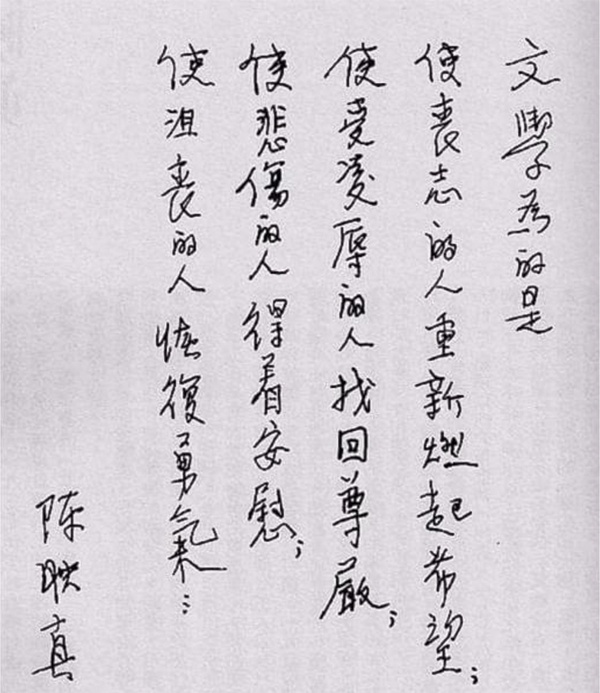 文學為的是
使喪志的人重新燃起希望;
使受凌辱的人找回尊嚴;
使悲傷的人得着安慰;
使沮喪的人恢復勇氣…
陈映真